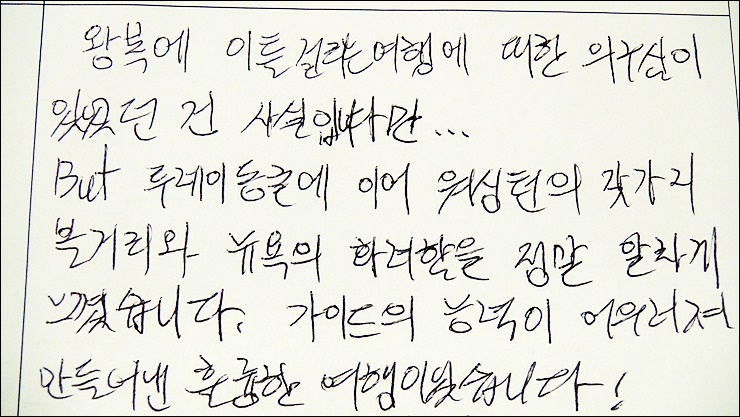 왕복에 이틀걸리는여행에 대한 의구심이
있었던 건 사실입니다만...
But 루레이동굴에 이어 워싱턴의 갖가지
볼거리와 뉴욕의 화려함을 정말 알차게
느꼈습니다. 가이드의 능력이 어우러져
만들어낸 훌륭한 여행이었습니다!